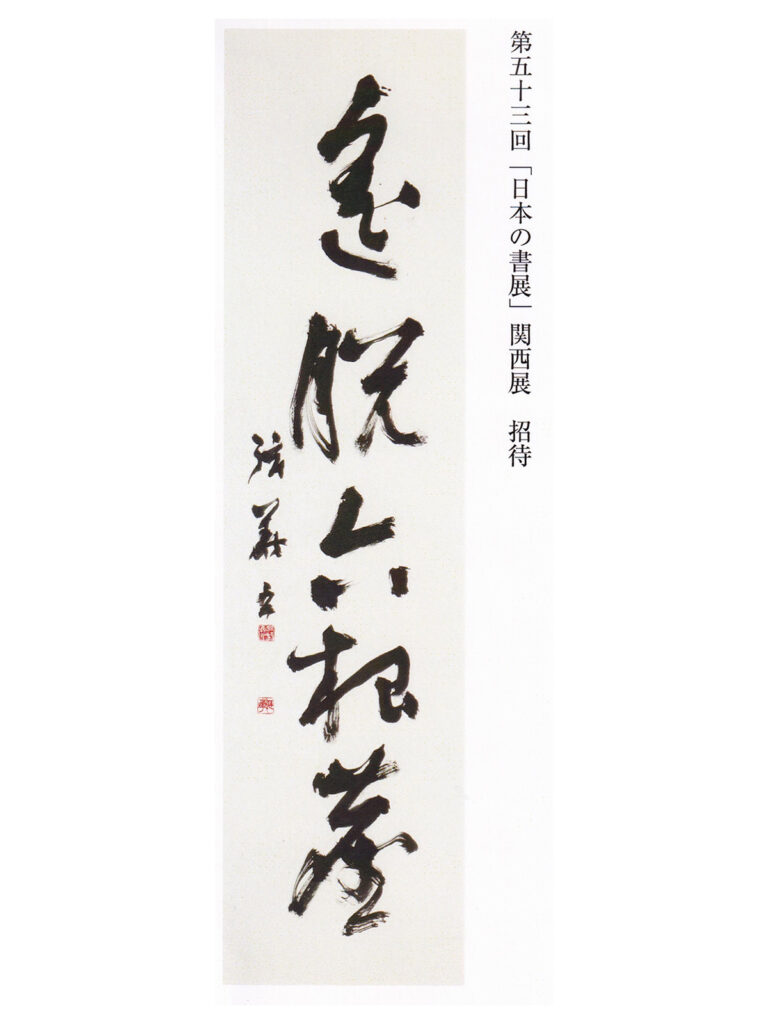 第五十三回「日本の書展」関西展　招待
脱六根塵